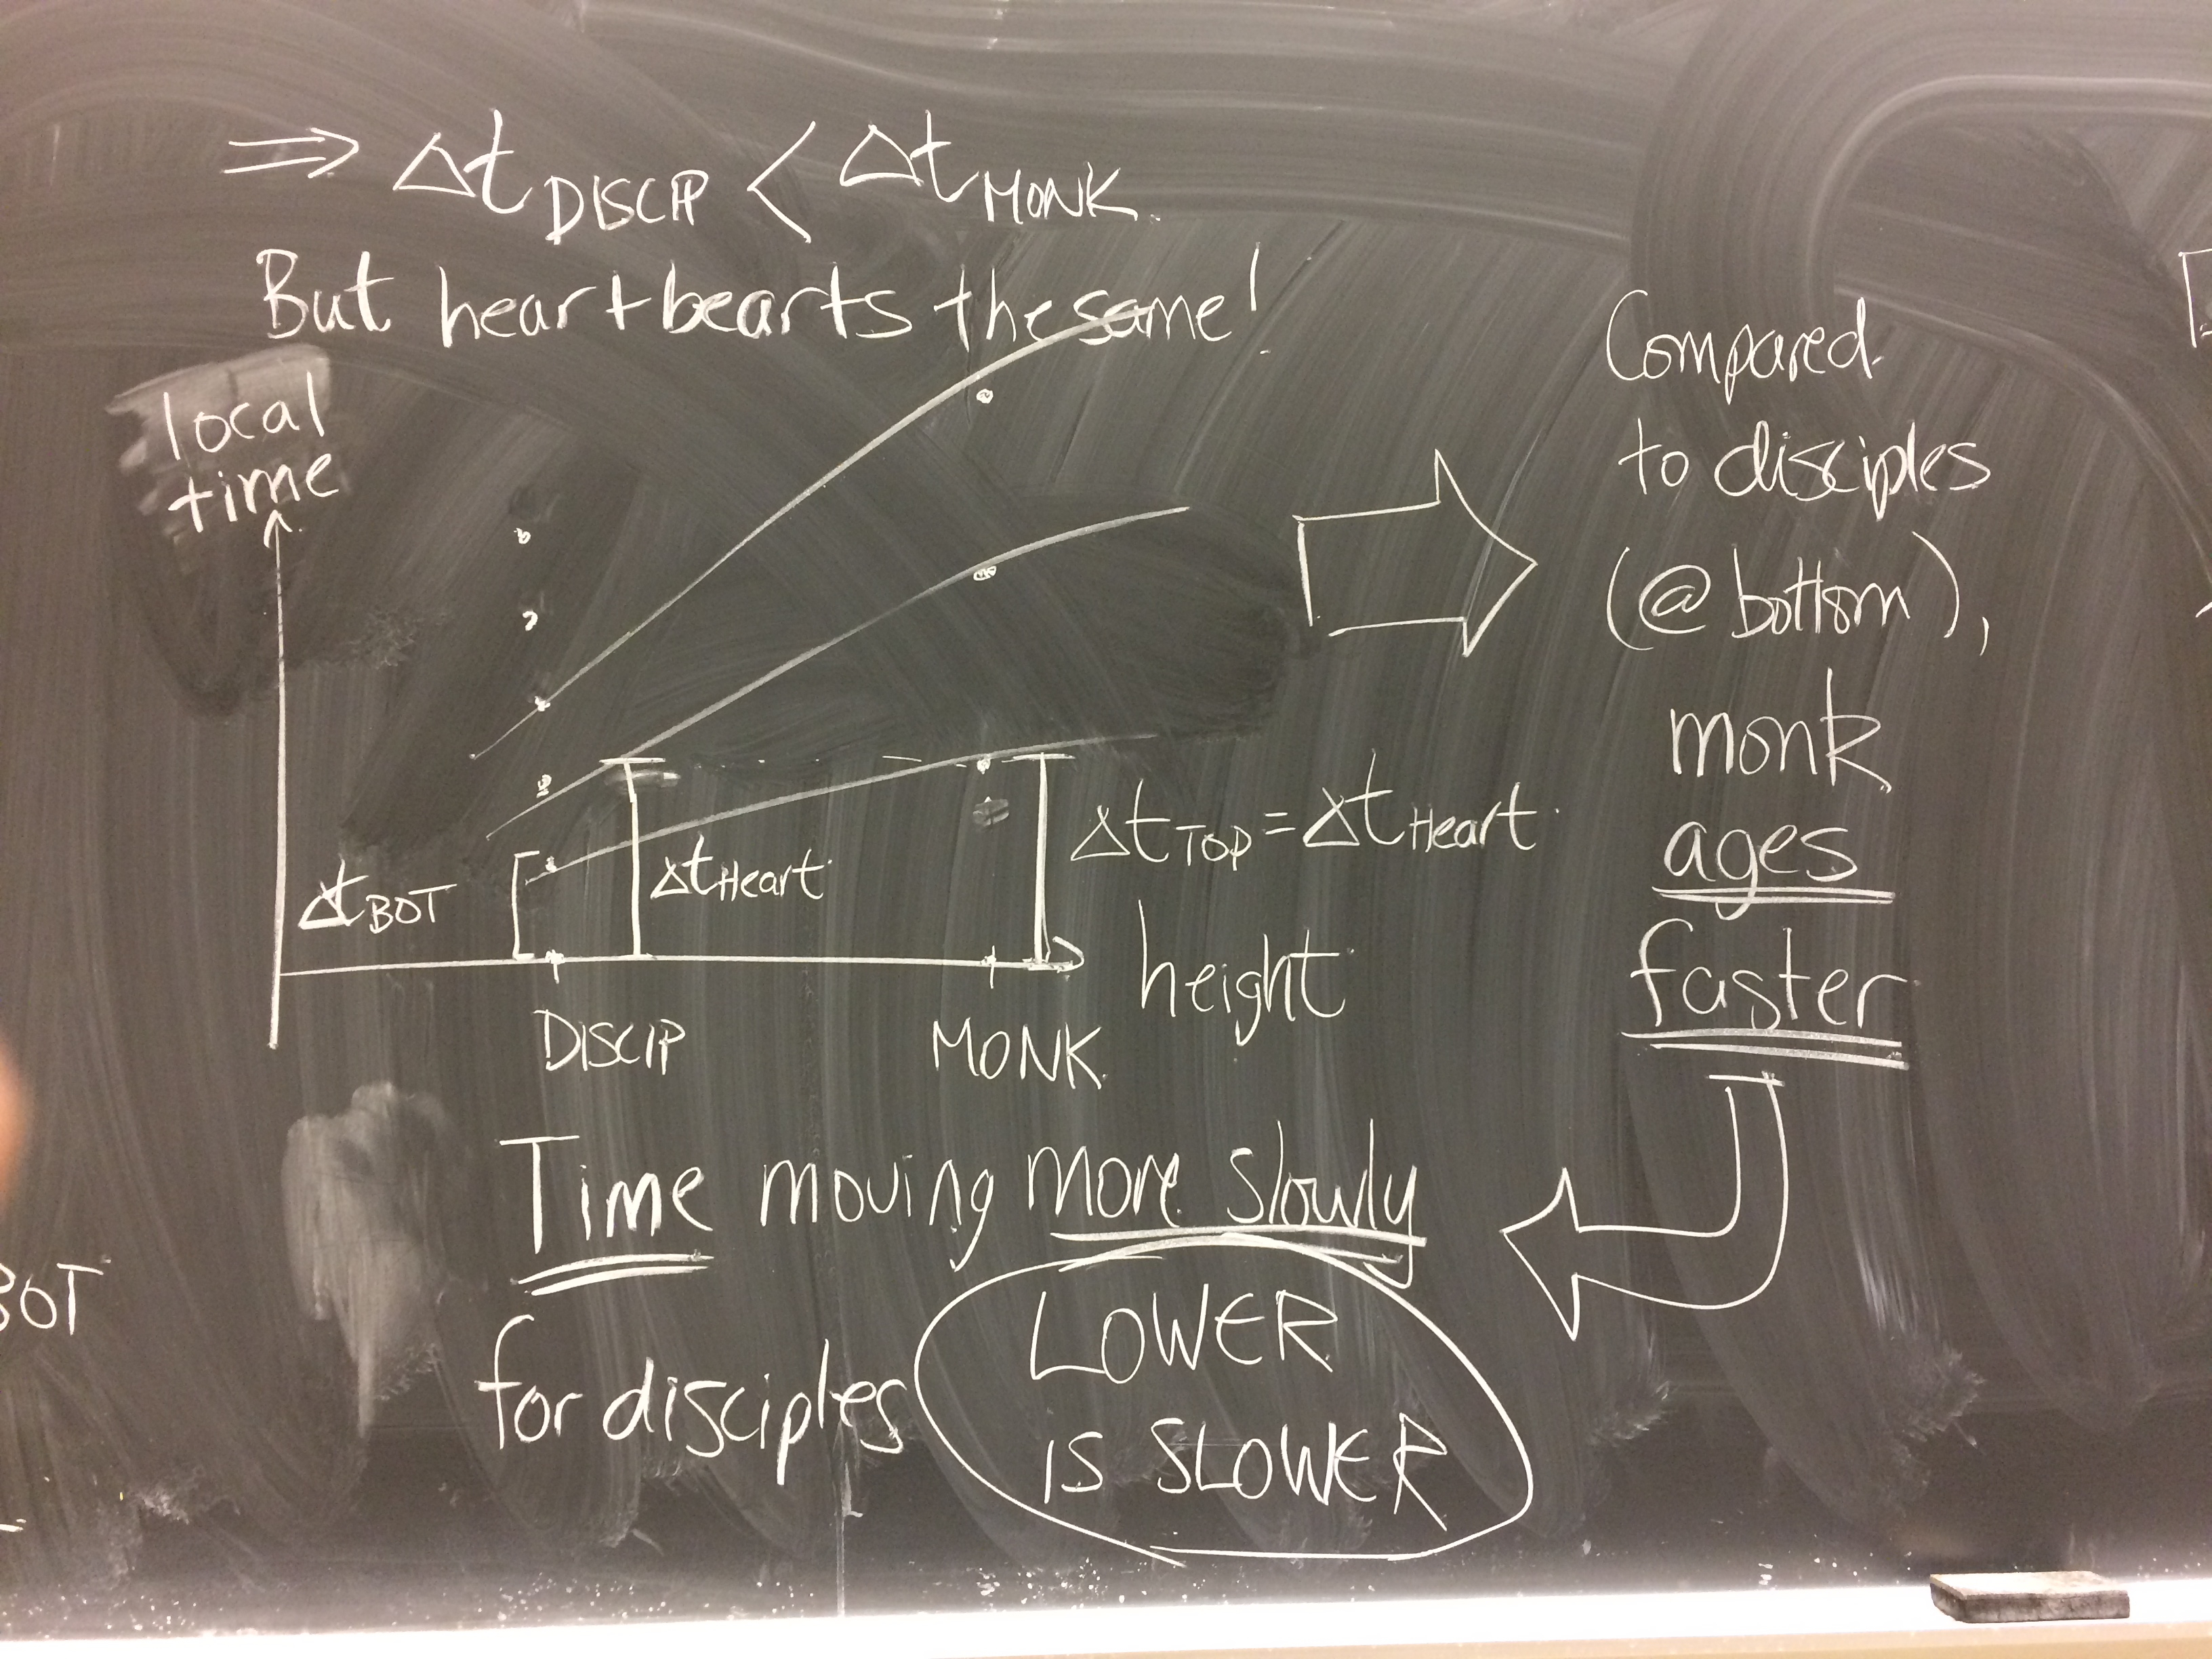 ⇒ Δt DISCIP < Δt MONK.
But heartbearts the same!
local
time
Δt BOT
Δt Heart
Δt TOP = Δt Heart
height
DISCIP
MONK
Compared
to disciples
(@ bottom),
monk
ages
faster
Time moving more slowly
for disciples
LOWER
IS SLOWER
BOT